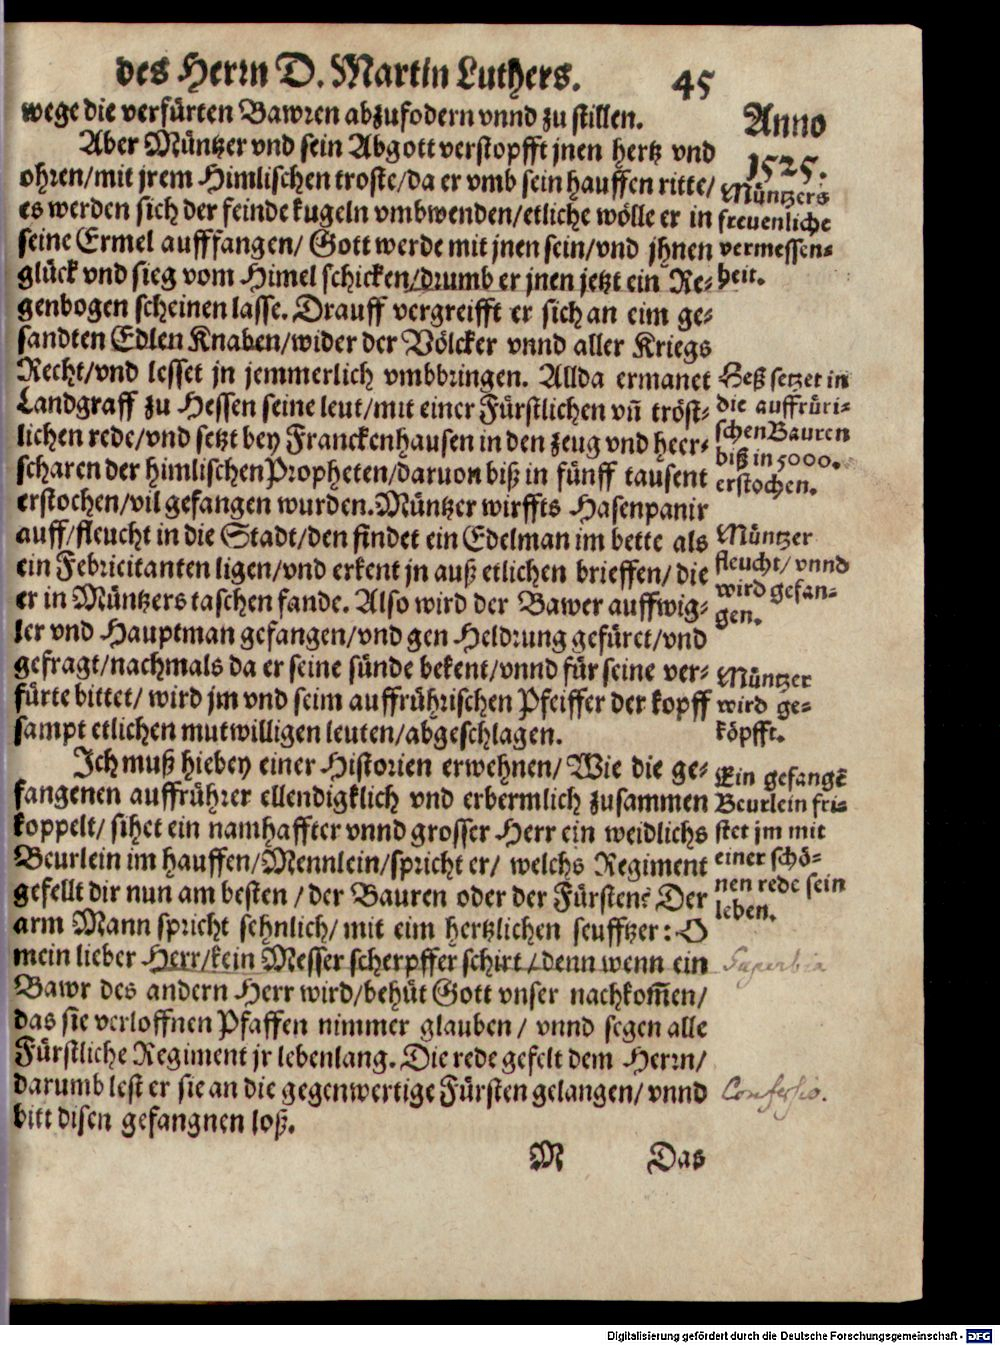 des Herrn D. Martin Luthers. 45
wege die verfürten Bawren abzufodern vnnd zu stillen.
Aber Müntzer vnd sein Abgott verstopfft jnen hertz vnd
ohren/mit jrem Himlischen troste/da er vmb sein hauffen ritte/
es werden sich der feinde kugeln vmbwenden/etliche wölle er in
seine Ermel aufffangen/ Gott werde mit jnen sein/vnd jhnen
glück vnd sieg vom Himel schicken/drumb er jnen jetzt ein Re-
genbogen scheinen lasse. Drauff vergreifft er sich an eim ge-
sandten Edlen Knaben/wider der Völcker vnnd aller Kriegs
Recht/vnd lesset jn jemmerlich vmbbringen. Allda ermanet
Landgraff zu Hessen seine leut/mit einer Fürstlichen vñ tröst-
lichen rede/vnd setzt bey Franckenhausen in den zeug vnd heer-
scharen der himlischen Propheten/daruon biß in fünff tausent
erstochen/vil gefangen wurden. Müntzer wirffts Hasenpanir
auff/fleucht in die Stadt/den findet ein Edelman im bette als
ein Febricitanten ligen/vnd erkent jn auß etlichen brieffen/die
er in Müntzers taschen fande. Also wird der Bawer auffwig-
ler vnd Hauptman gefangen/vnd gen Heldrung gefüret/vnd
gefragt/nachmals da er seine sünde bekent/vnnd für seine ver-
fürte bittet/ wird jm vnd seim auffrührischen Pfeiffer der kopff
sampt etlichen mutwilligen leuten/abgeschlagen.
Ich muß hiebey einer Historien erwehnen/ Wie die ge-
fangenen auffrührer ellendigklich vnd erbermlich zusammen
koppelt/ sihet ein namhaffter vnnd grosser Herr ein weidlichs
Beurlein im hauffen/Mennlein/spricht er/ welchs Regiment
gefellt dir nun am besten / der Bauren oder der Fürsten? Der
arm Mann spricht sehnlich/mit eim hertzlichen seufftzer: O
mein lieber Herr/kein Messer scherpffer schirt/denn wenn ein
Bawr des andern Herr wird/behüt Gott vnser nachkom̃en/
das sie verloffnen Pfaffen nimmer glauben/ vnnd segen alle
Fürstliche Regiment jr lebenlang. Die rede gefelt dem Herrn/
darumb lest er sie an die gegenwertige Fürsten gelangen/vnnd
bitt disen gefangnen loß.
M Das
Anno
1525.
Müntzers
freuenliche
vermessen-
heit.
Heß setzet in
die auffrüri-
schen Bauren
biß in 5000.
erstochen.
Müntzer
fleucht/vnnd
wird gefan-
gen.
Müntzer
wird ge-
köpfft.
Ein gefangẽ
Beurlein fri-
stet jm mit
einer schö-
nen rede sein
leben.
Superbia
Confessio.
Digitalisierung gefördert durch die Deutsche Forschungsgemeinschaft - DFG